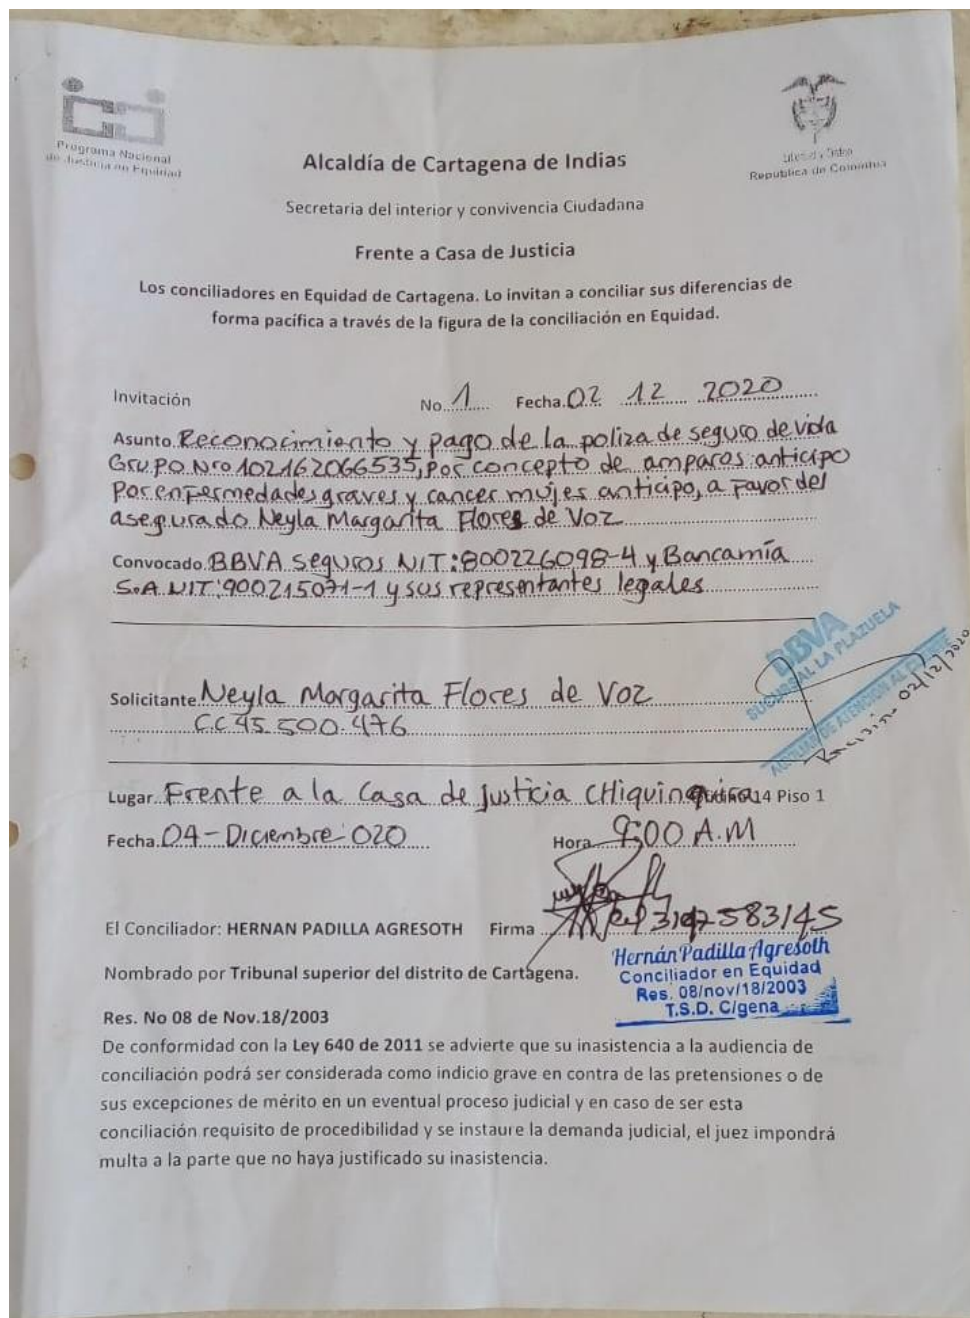 Programa Nacional
de Justicia en Equidad
Libertad y Orden
Republica de Colombia
Alcaldía de Cartagena de Indias
Secretaria del interior y convivencia Ciudadana
Frente a Casa de Justicia
Los conciliadores en Equidad de Cartagena. Lo invitan a conciliar sus diferencias de
forma pacífica a través de la figura de la conciliación en Equidad.
Invitación No. 1 Fecha. 02 12 2020
Asunto. Reconocimiento y pago de la poliza de seguro de vida
Grupo Nro 102162066535, por concepto de amparos: anticipo
Por enfermedades graves y cancer mujer anticipo, a favor del
asegurado Neyla Margarita Flores de Voz
Convocado. BBVA Seguros NIT: 800226098-4 y Bancamía
S.A NIT: 900215071-1 y sus representantes legales
BBVA
SUCURSAL LA PLAZUELA
AUXILIAR DE ATENCION AL CLIENTE
02/12/2020
Solicitante Neyla Margarita Flores de Voz
C.C 45.500.476
Lugar. Frente a la Casa de Justicia CHiquinquira 14 Piso 1
Fecha. 04-Diciembre 020 Hora 9:00 A.M
El Conciliador: HERNAN PADILLA AGRESOTH Firma
Hernán Padilla Agresoth
Conciliador en Equidad
Res. 08/nov/18/2003
T.S.D. C/gena
Nombrado por Tribunal superior del distrito de Cartagena.
Res. No 08 de Nov.18/2003
De conformidad con la Ley 640 de 2011 se advierte que su inasistencia a la audiencia de
conciliación podrá ser considerada como indicio grave en contra de las pretensiones o de
sus excepciones de mérito en un eventual proceso judicial y en caso de ser esta
conciliación requisito de procedibilidad y se instaure la demanda judicial, el juez impondrá
multa a la parte que no haya justificado su inasistencia.